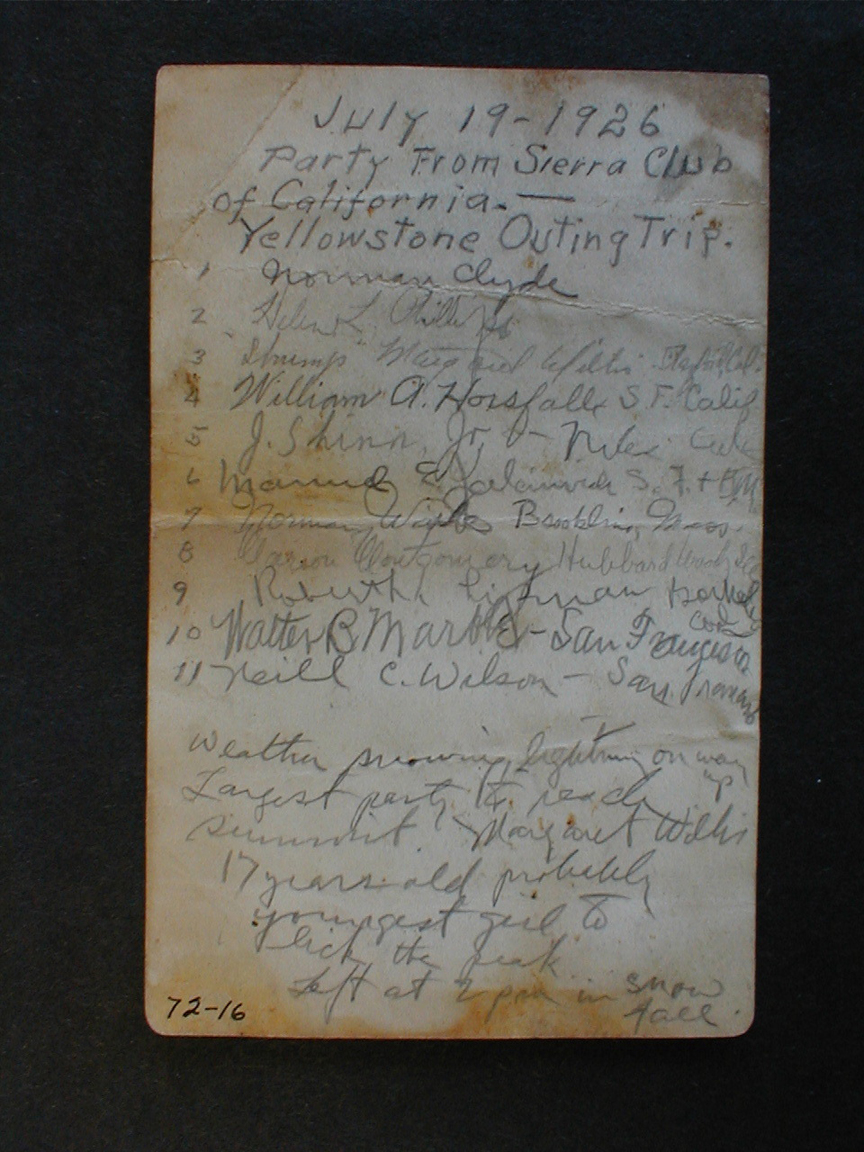 July 19-1926
Party From Sierra Club
of California. —
Yellowstone Outing Trip.
1 Norman Clyde
2 Helen L.
3 "Shrimp" Margaret Willis
4 William A. Horsfall S.F. Calif
5 J. Shinn, Jr. - Niles
6 S.F.
7 Norman Brookline, Mass.
8 Montgomery Hubbard
9 Lipman Berkeley
Cal
10 Walter B Marble - San Francisco
11 Neill C. Wilson - San Francisco
Weather snowing, lightning on way
up
Largest party to reach
summit. Margaret Willis
17 years old probably
youngest girl to
lick the peak
Left at 2 pm in snow
fall.
72-16